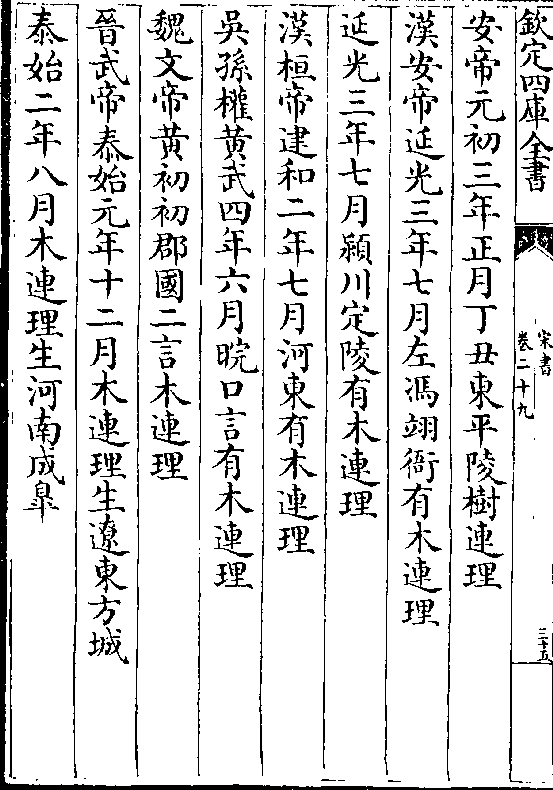 欽定四庫全書
宋書
卷二十九
三十五
安帝元初三年正月丁丑東平陵樹連理
漢安帝延光三年七月左馮翊衙有木連理
延光三年七月潁川定陵有木連理
漢桓帝建和二年七月河東有木連理
吳孫權黃武四年六月皖口言有木連理
魏文帝黃初初郡國二言木連理
晉武帝泰始元年十二月木連理生遼東方城
泰始二年八月木連理生河南成皋